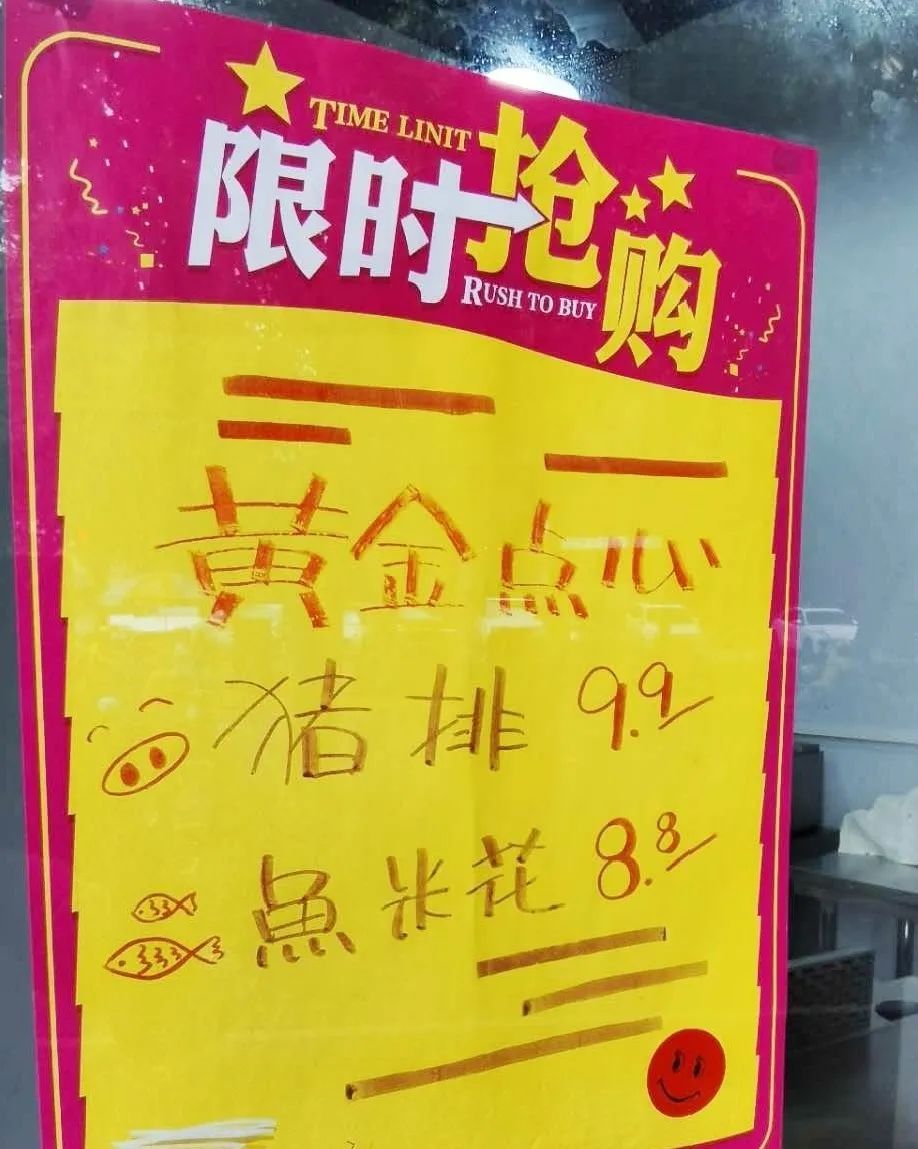 TIME LINIT
限时抢购
RUSH TO BUY
黄金点心
猪排 9.9
魚米花 8.8